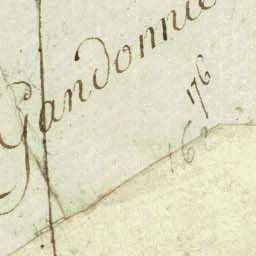 Gandonnie
176
162